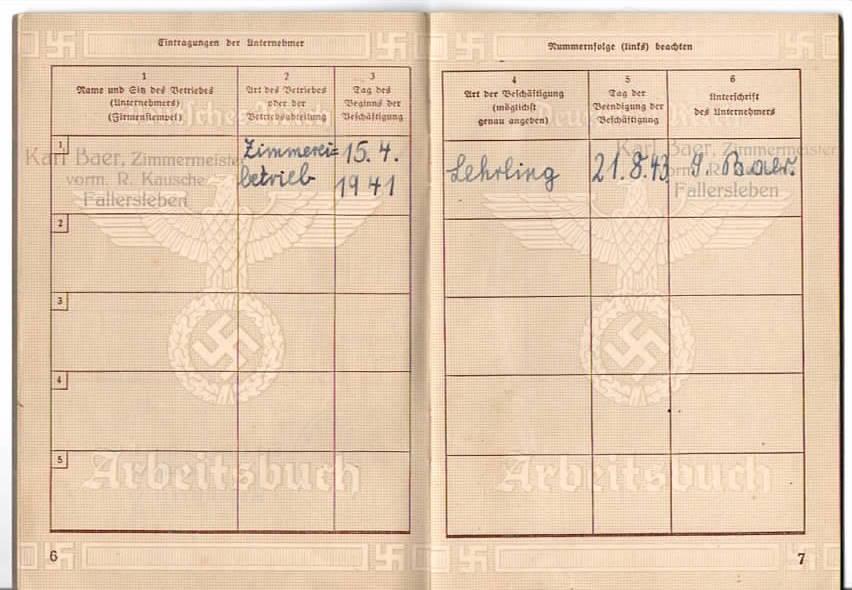 Eintragungen der Unternehmer
1
Name und Sitz des Betriebes
(Unternehmers)
(Firmenstempel)
2
Art des Betriebes
oder der
Betriebsabteilung
3
Tag des
Beginns der
Beschäftigung
1
Karl Baer, Zimmermeister
vorm. R. Kausche
Fallersleben
Zimmerei=
betrieb
15. 4.
1941
2
3
4
5
Deutsches Reich
Arbeitsbuch
6
Nummernfolge (links) beachten
4
Art der Beschäftigung
(möglichst
genau angeben)
5
Tag der
Beendigung der
Beschäftigung
6
Unterschrift
des Unternehmers
Lehrling
21.8.43
Karl Baer, Zimmermeister
vorm. R.
Fallersleben
Baer.
Deutsches Reich
Arbeitsbuch
7